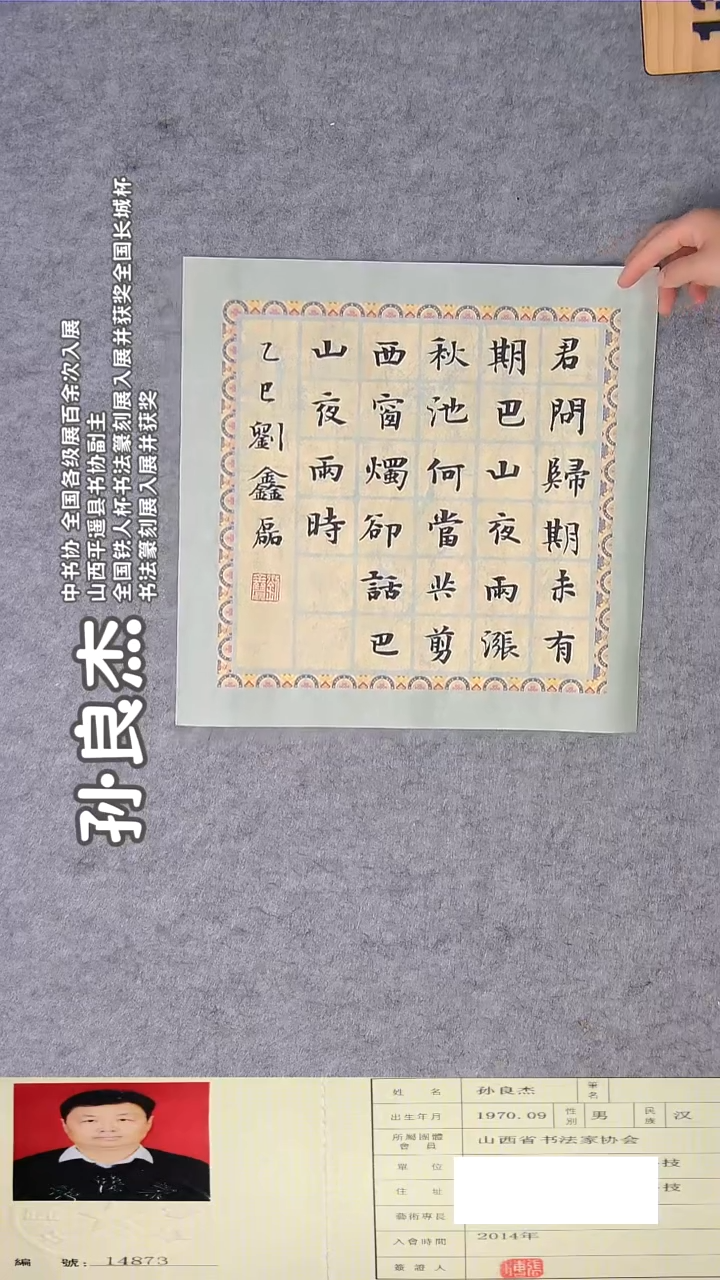 君問歸期未有
期巴山夜雨漲
秋池何當共剪
西窗燭卻話巴
山夜雨時
乙巳劉鑫磊
中书协 全国各级展百余次入展
山西平遥县书协副主
全国铁人杯书法篆刻展入展并获奖全国长城杯
书法篆刻展入展并获奖
孙良杰
姓名 孙良杰 筆名
出生年月 1970.09 性別 男 民族 汉
所屬團體會員 山西省书法家协会
單位 技
住址 技
藝術專長
入會時間 2014年
簽證人
編號: 14873